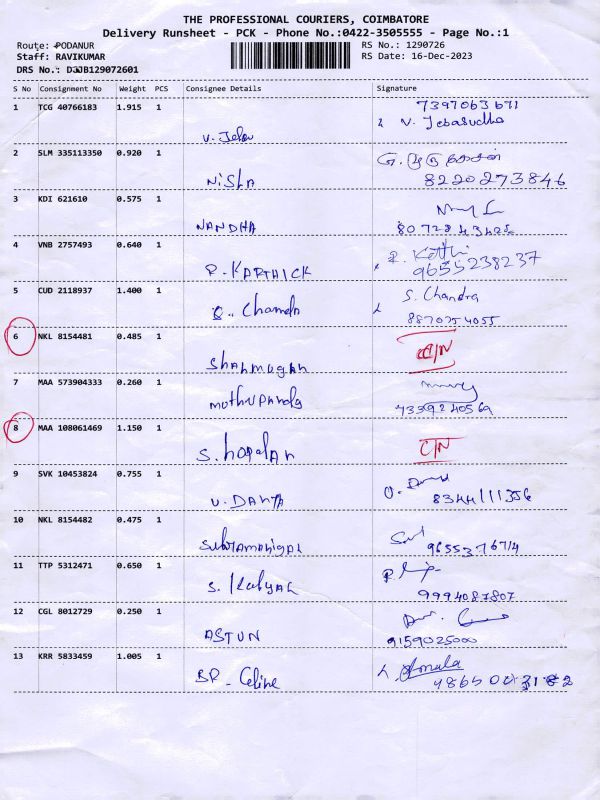 THE PROFESSIONAL COURIERS, COIMBATORE
Delivery Runsheet - PCK - Phone No.:0422-3505555 - Page No.:1
Route: PODANUR RS No.: 1290726
Staff: RAVIKUMAR RS Date: 16-Dec-2023
DRS No.: D33B129072601
S No Consignment No Weight PCS Consignee Details Signature
1 TCG 40766183 1.915 1 7397063671
V. Jebasudha
2 SLM 335113350 0.920 1
NISHA 8220273846
3 KDI 621610 0.575 1
NANDHA
4 VNB 2757493 0.640 1
R. KARTHICK 9655238237
5 CUD 2118937 1.400 1 S. Chandra
8870754055
6 NKL 8154481 0.485 1 C/N
Shanmugan
7 MAA 573904333 0.260 1
8 MAA 108061469 1.150 1 C/N
S.
9 SVK 10453824 0.755 1
8344111356
10 NKL 8154482 0.475 1
11 TTP 5312471 0.650 1
S. 9994087807
12 CGL 8012729 0.250 1
ASTUN 9159025000
13 KRR 5833459 1.005 1 Amala
BR. Celine